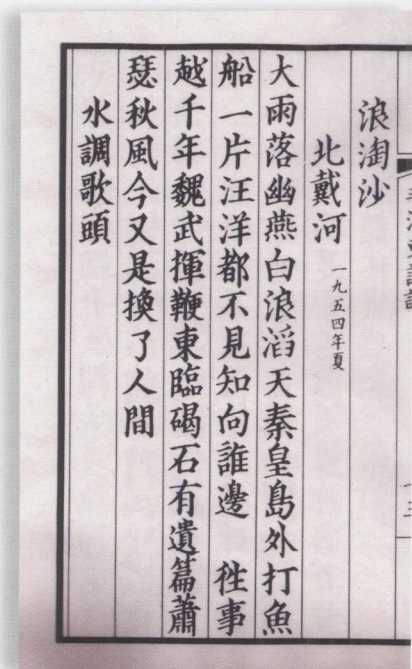 浪淘沙
北戴河 一九五四年夏
大雨落幽燕白浪滔天秦皇島外打魚
船一片汪洋都不見知向誰邊 徃事
越千年魏武揮鞭東臨碣石有遺篇蕭
瑟秋風今又是換了人間
水調歌頭